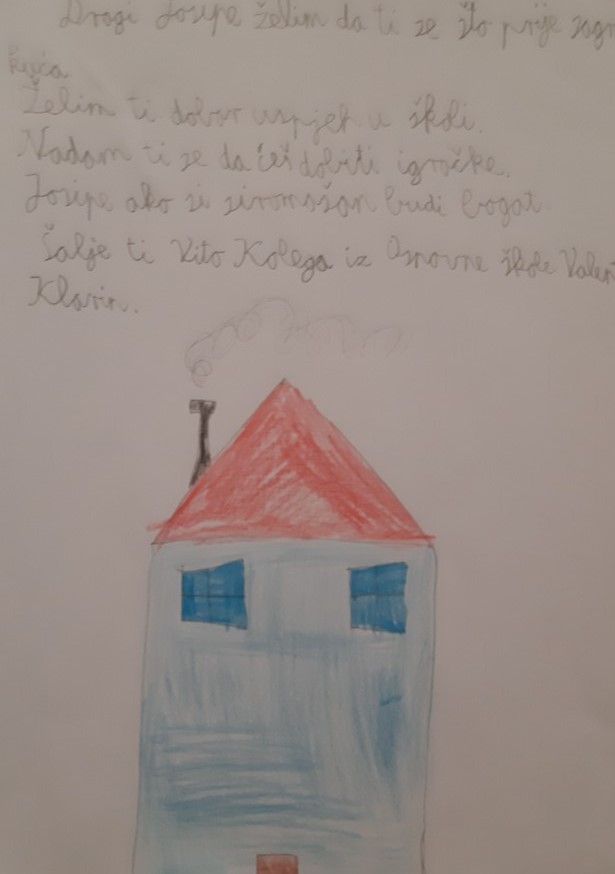 Dragi Josipe želim da ti se što prije sagr
kuća
Želim ti dobar uspjeh u školi.
Nadam ti se da ćeš dobiti igračke.
Josipe ako si siromašan budi bogat.
Šalje ti Vito Kolega iz Osnovne škole Valent
Klarin.